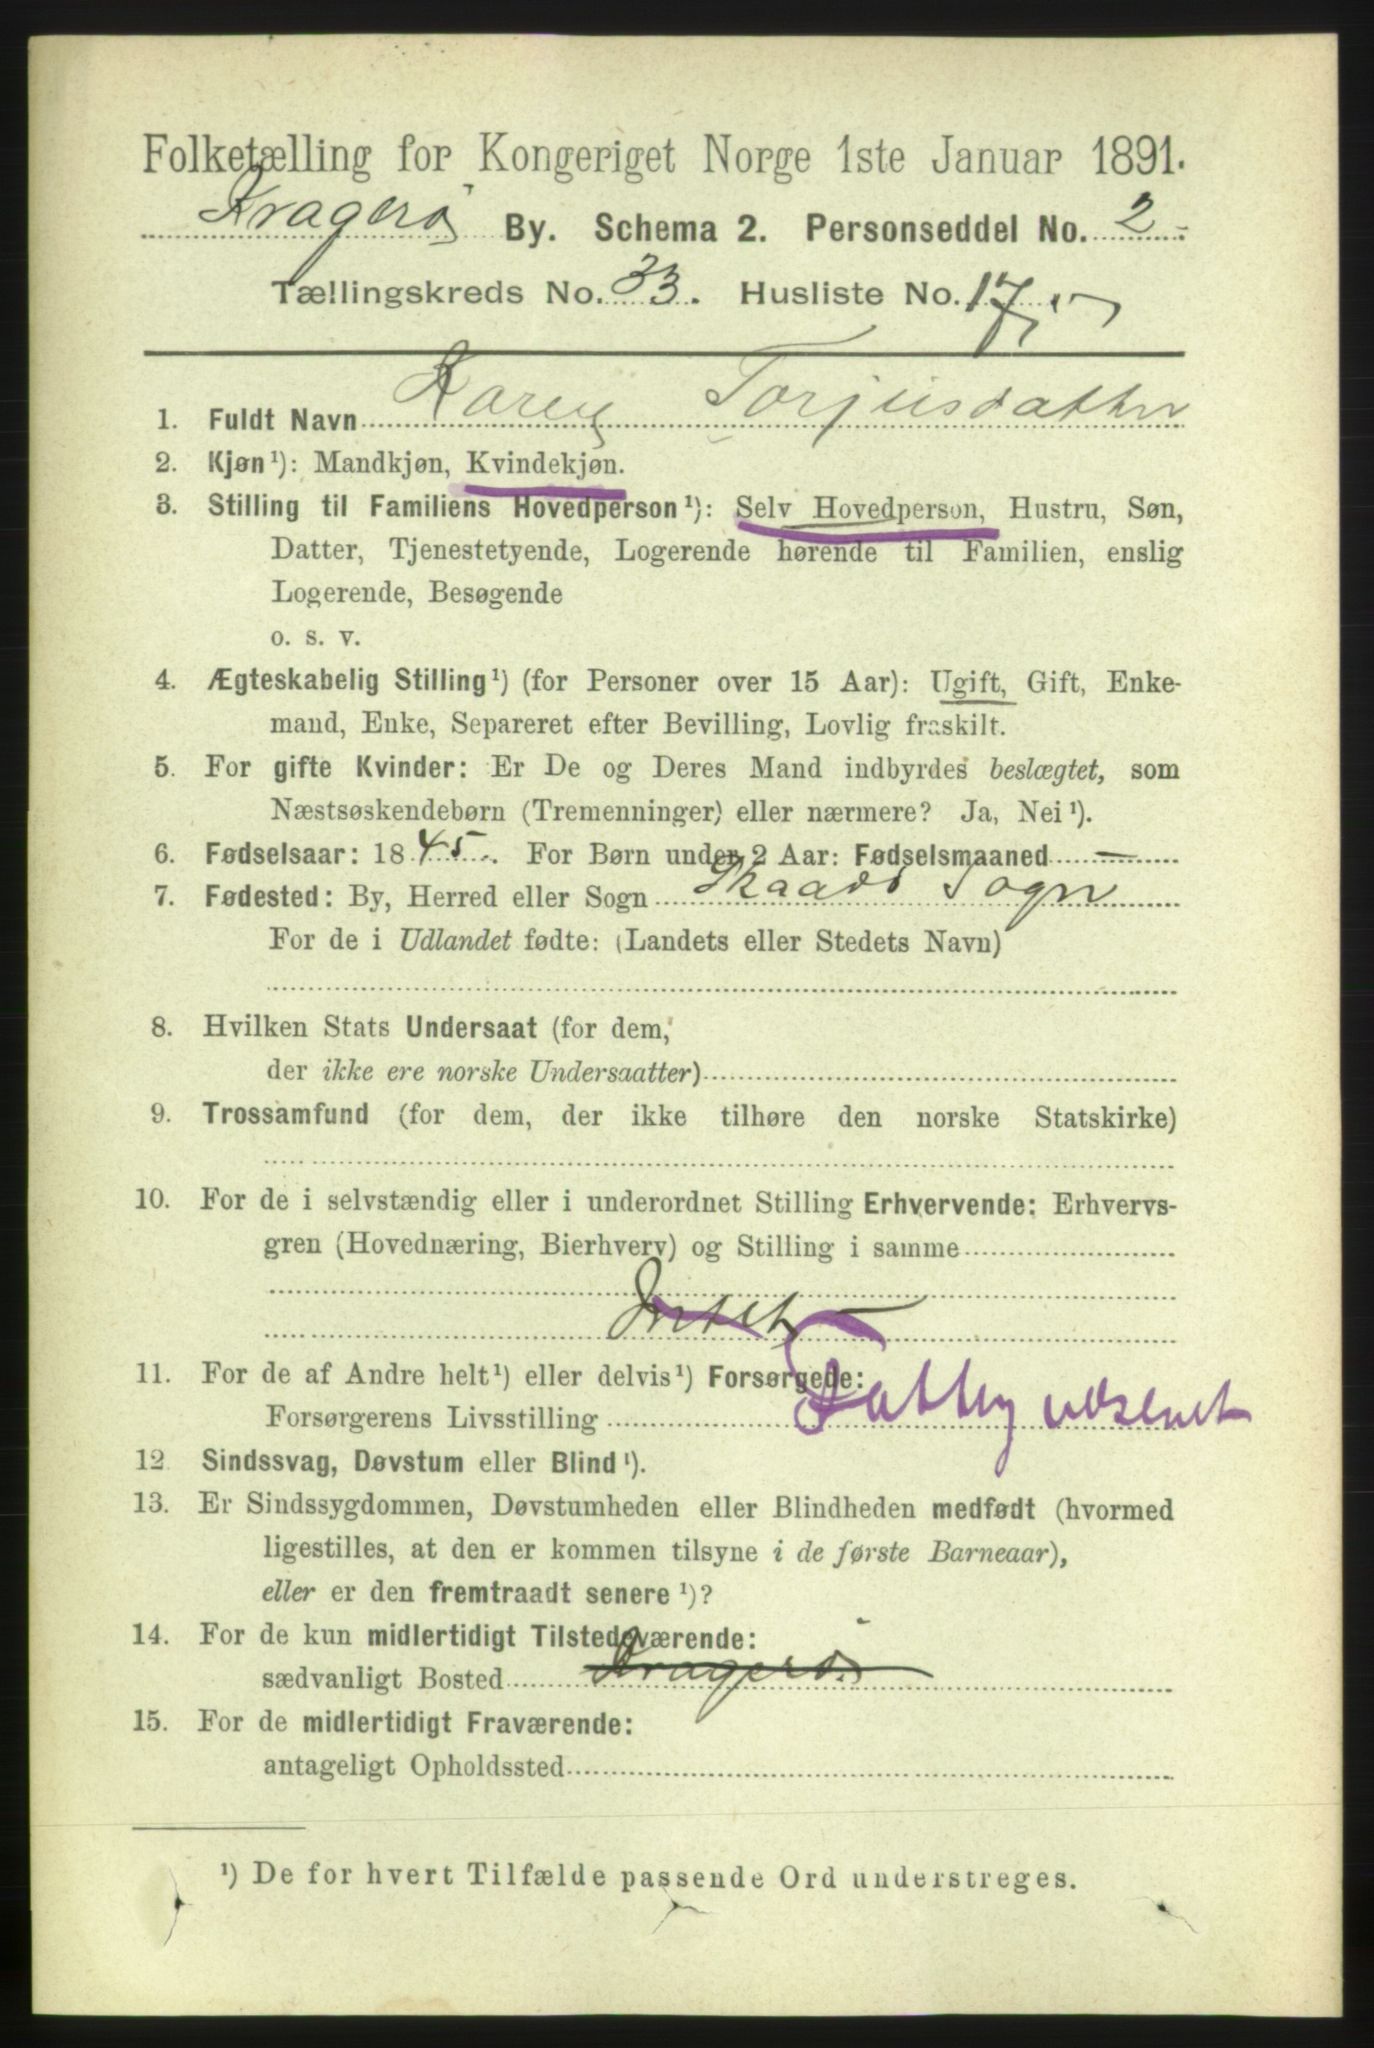 Folketælling for Kongeriget Norge 1ste Januar 1891.
Kragerö By. Schema 2. Personseddel No. 2
Tællingskreds No. 33. Husliste No. 17.
1. Fuldt Navn Karen Torjusdatter
2. Kjøn¹): Mandkjøn, Kvindekjøn.
3. Stilling til Familiens Hovedperson¹): Selv Hovedperson, Hustru, Søn,
Datter, Tjenestetyende, Logerende hørende til Familien, enslig
Logerende, Besøgende
o. s. v.
4. Ægteskabelig Stilling¹) (for Personer over 15 Aar): Ugift, Gift, Enke-
mand, Enke, Separeret efter Bevilling, Lovlig fraskilt.
5. For gifte Kvinder: Er De og Deres Mand indbyrdes beslægtet, som
Næstsøskendebørn (Tremenninger) eller nærmere? Ja, Nei¹).
6. Fødselsaar: 1845. For Børn under 2 Aar: Fødselsmaaned —
7. Fødested: By, Herred eller Sogn Sogn
For de i Udlandet fødte: (Landets eller Stedets Navn)
8. Hvilken Stats Undersaat (for dem,
der ikke ere norske Undersaatter)
9. Trossamfund (for dem, der ikke tilhøre den norske Statskirke)
10. For de i selvstændig eller i underordnet Stilling Erhvervende: Erhvervs-
gren (Hovednæring, Bierhverv) og Stilling i samme
Intet
11. For de af Andre helt¹) eller delvis¹) Forsørgede:
Forsørgerens Livsstilling
12 Sindssvag, Døvstum eller Blind¹).
13. Er Sindssygdommen, Døvstumheden eller Blindheden medfødt (hvormed
ligestilles, at den er kommen tilsyne i de første Barneaar),
eller er den fremtraadt senere¹)?
14. For de kun midlertidigt Tilstedeværende:
sædvanligt Bosted Kragerö
15. For de midlertidigt Fraværende:
antageligt Opholdssted
¹) De for hvert Tilfælde passende Ord understreges.